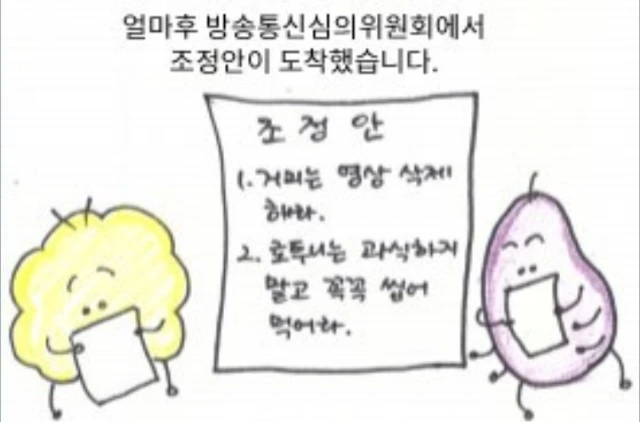 얼마후 방송통신심의위원회에서
조정안이 도착했습니다.
조정안
1. 거미는 영상 삭제
해라.
2. 로투니는 과식하지
말고 꼭꼭 씹어
먹어라.